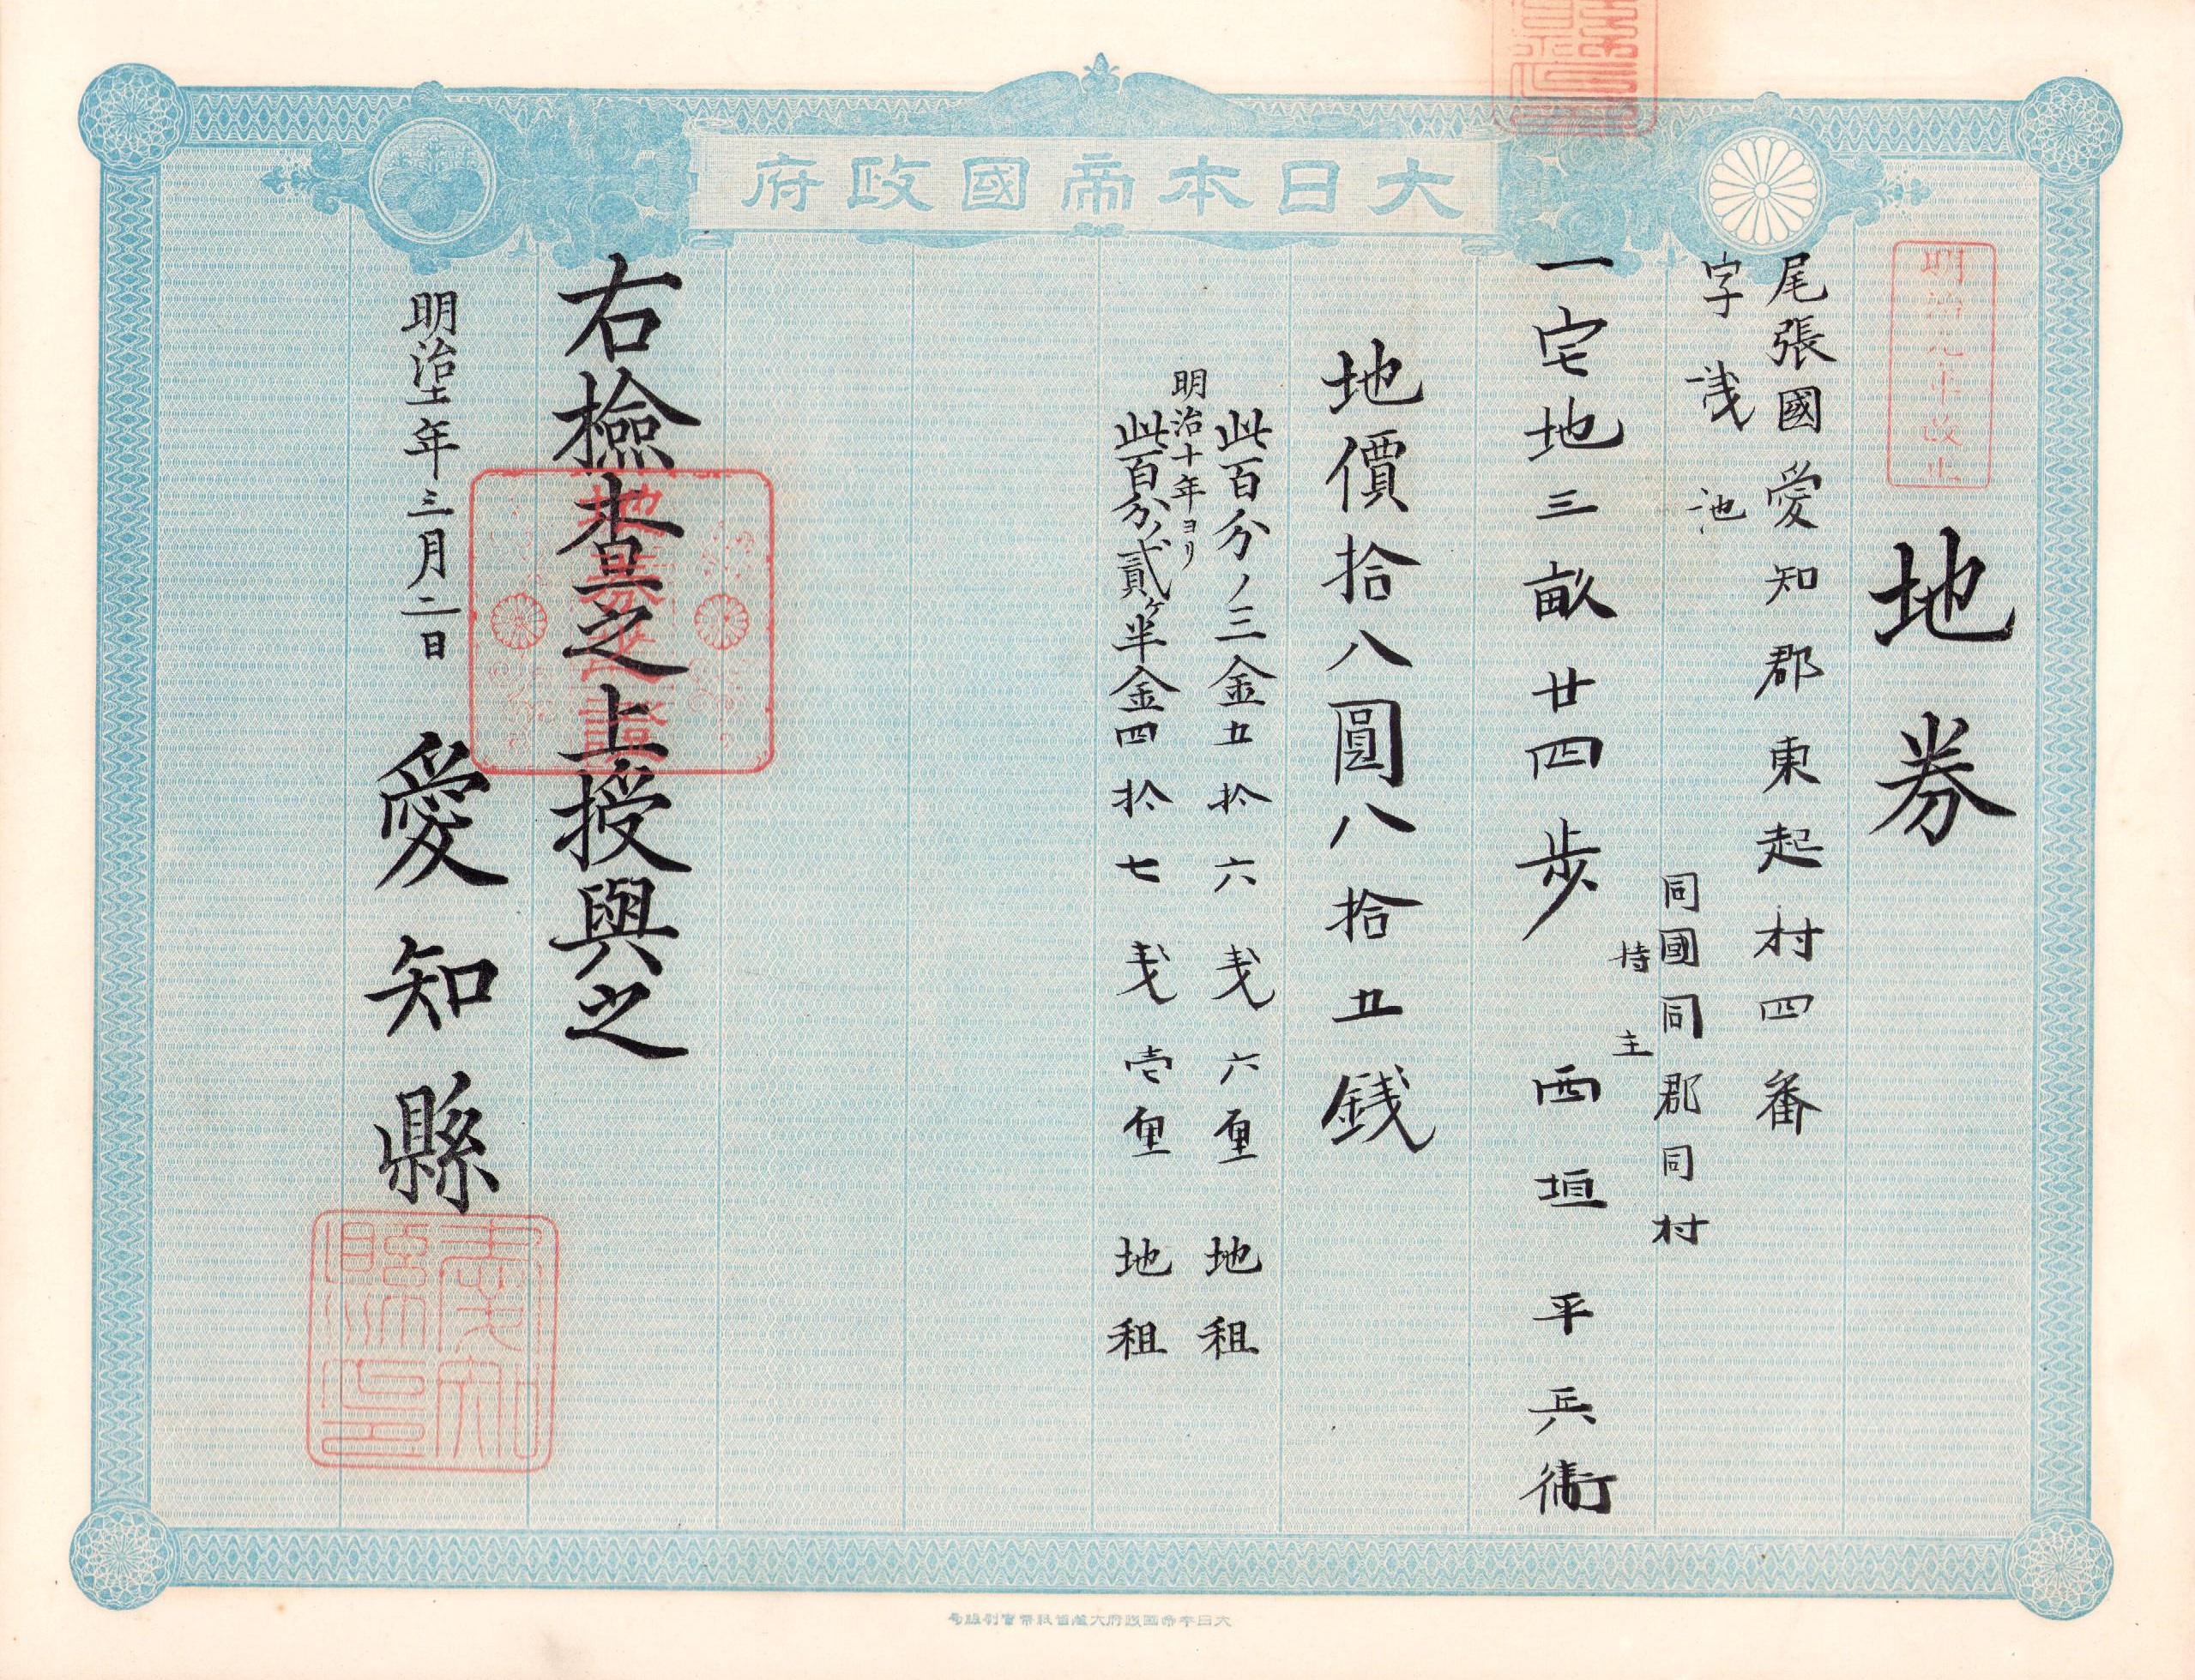 大日本帝國政府
地券
尾張國愛知郡東起村四番
字浅池
同國同郡同村
持主
一宅地三畝廿四歩 西垣平兵衛
地價拾八圓八拾五銭
此百分ノ三金五拾六戋六厘 地租
明治十年ヨリ
此百分ノ貳ケ半金四拾七戋壱厘 地租
右撿査之上授與之
明治十二年三月二日
愛知縣
地券之證
愛知縣印
大日本帝國政府大蔵省紙幣寮刷